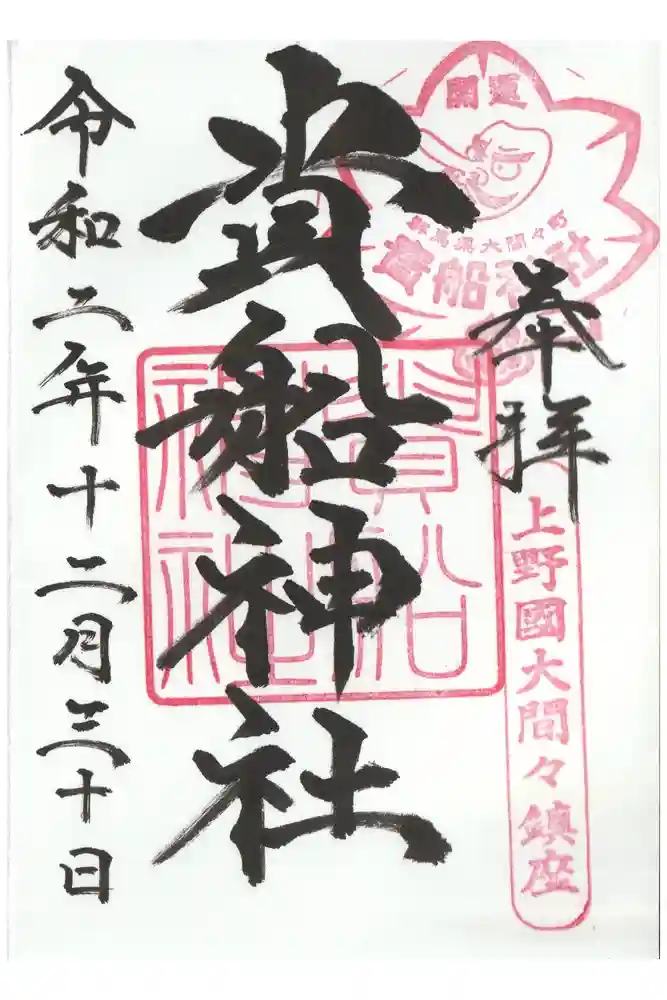 開運
群馬県大間々町
貴船神社
奉拝
上野國大間々鎮座
貴船神社
貴船
神社
令和二年十二月三十日